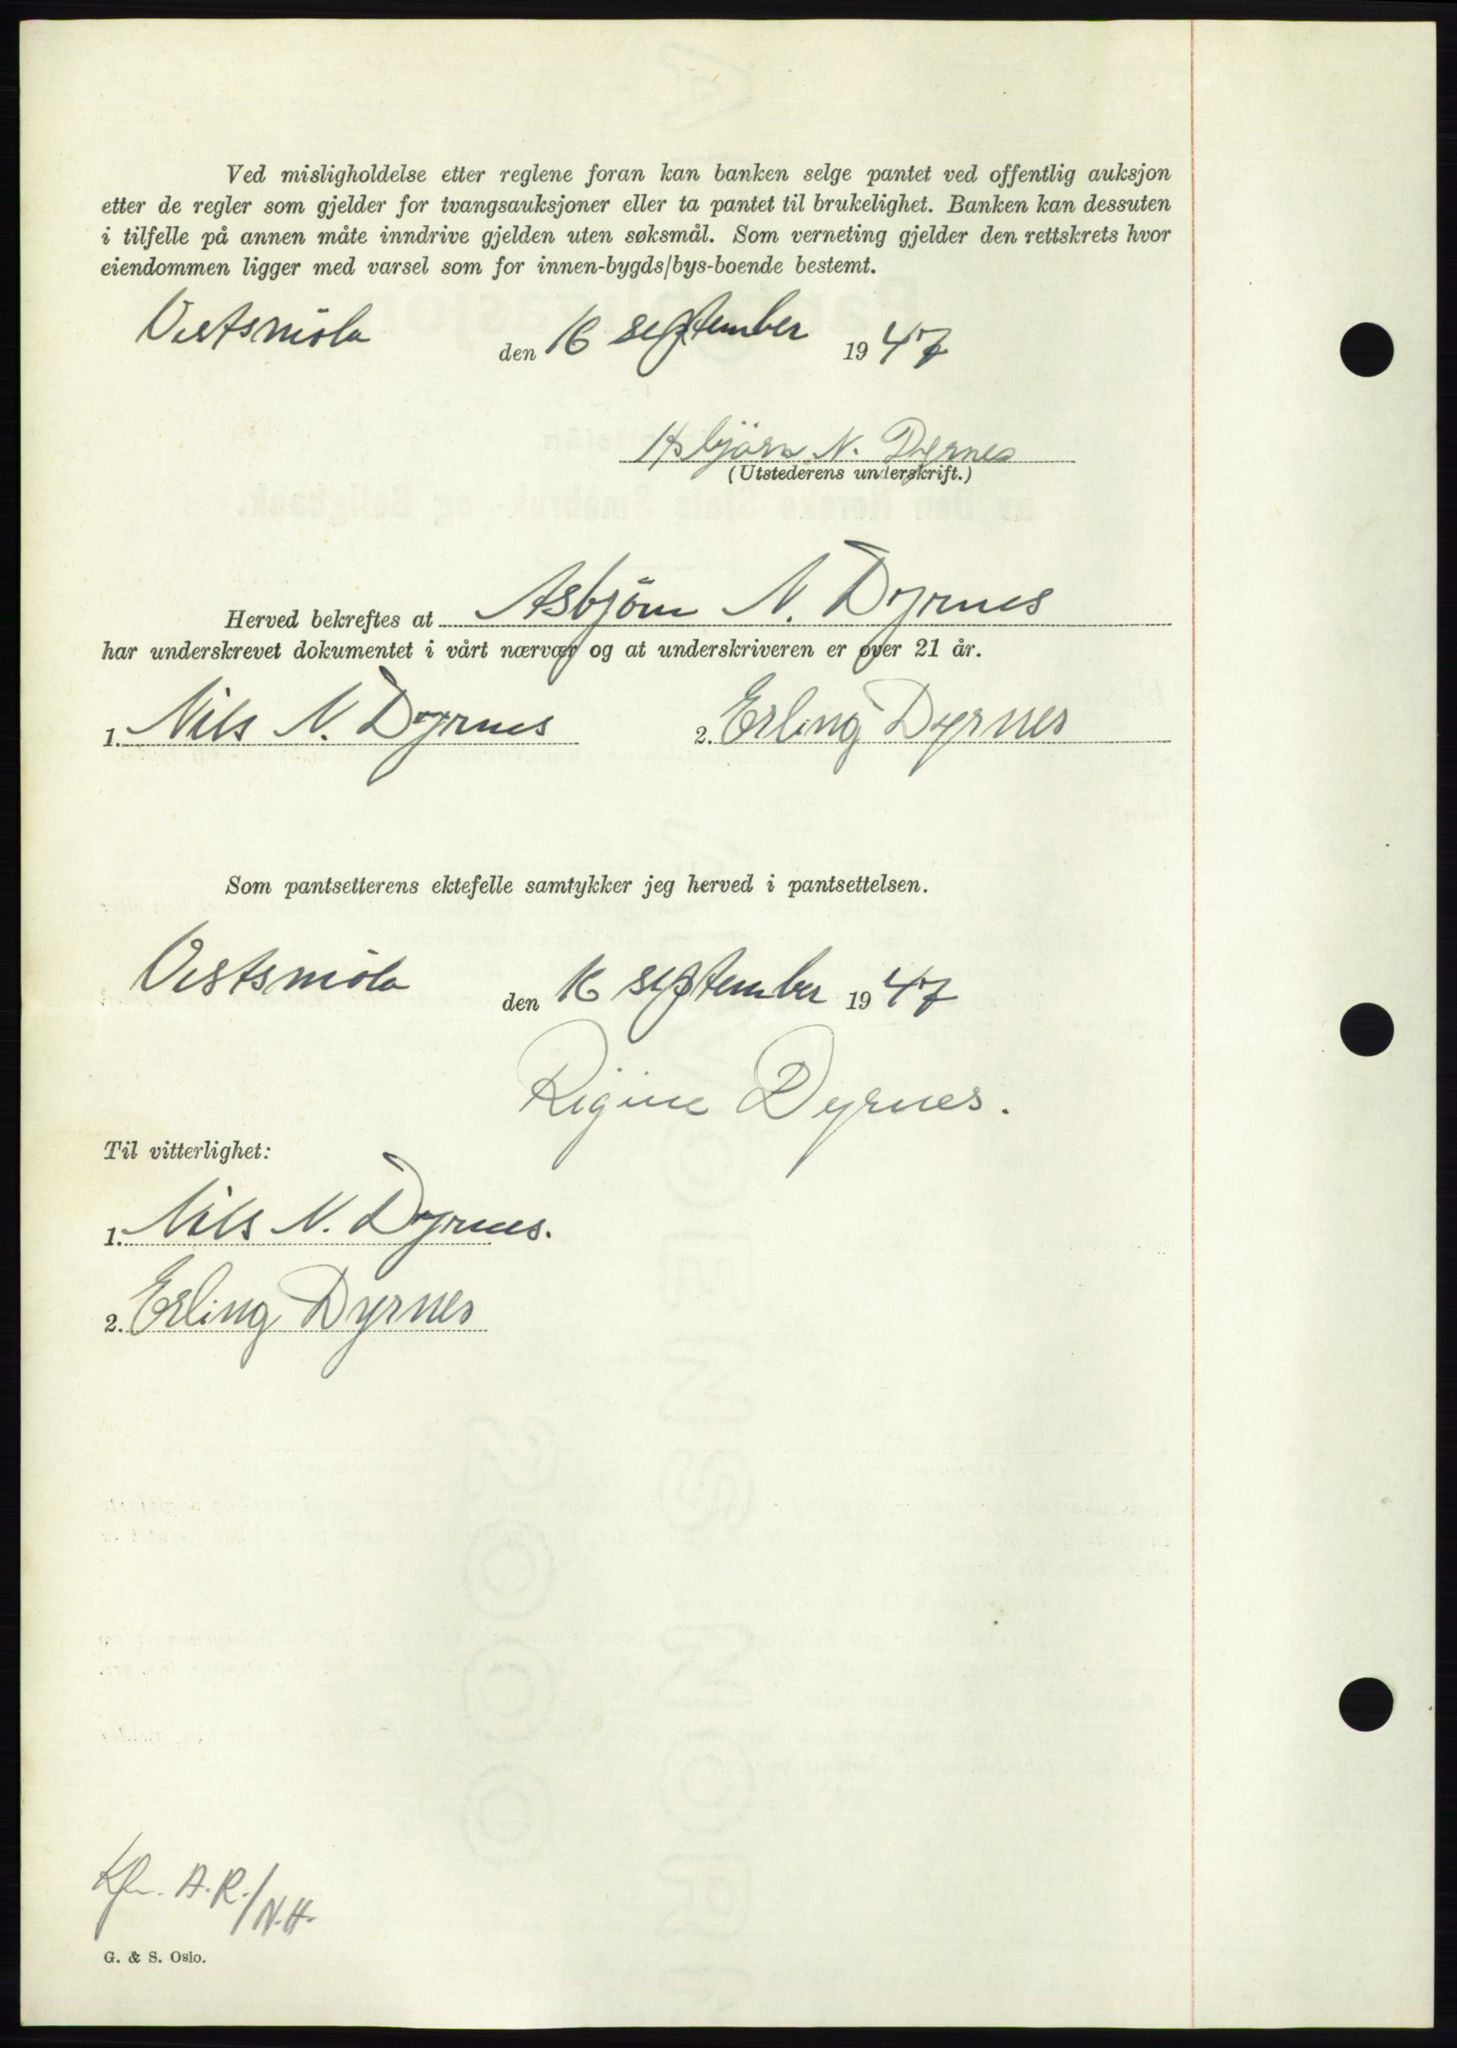 Ved misligholdelse etter reglene foran kan banken selge pantet ved offentlig auksjon
etter de regler som gjelder for tvangsauksjoner eller ta pantet til brukelighet. Banken kan dessuten
i tilfelle på annen måte inndrive gjelden uten søksmål. Som verneting gjelder den rettskrets hvor
eiendommen ligger med varsel som for innen-bygds/bys-boende bestemt.
Vestsmöla den 16 september 1947
Asbjörn N. Dyrnes
(Utstederens underskrift.)
Herved bekreftes at Asbjörn N. Dyrnes
har underskrevet dokumentet i vårt nærvær og at underskriveren er over 21 år.
1. Nils N. Dyrnes 2. Erling Dyrnes
Som pantsetterens ektefelle samtykker jeg herved i pantsettelsen.
Vestsmöla den 16 september 1947
Regine Dyrnes.
Til vitterlighet:
1. Nils N. Dyrnes.
2. Erling Dyrnes
A.R./N.H.
G. & S. Oslo.